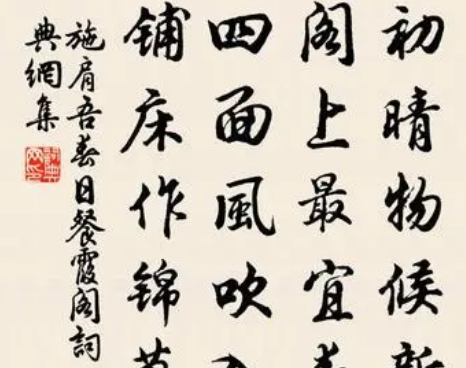 初晴物候新
閣上最宜春
四面風吹
鋪床作錦
施肩吾春日餐霞閣詞
典網集